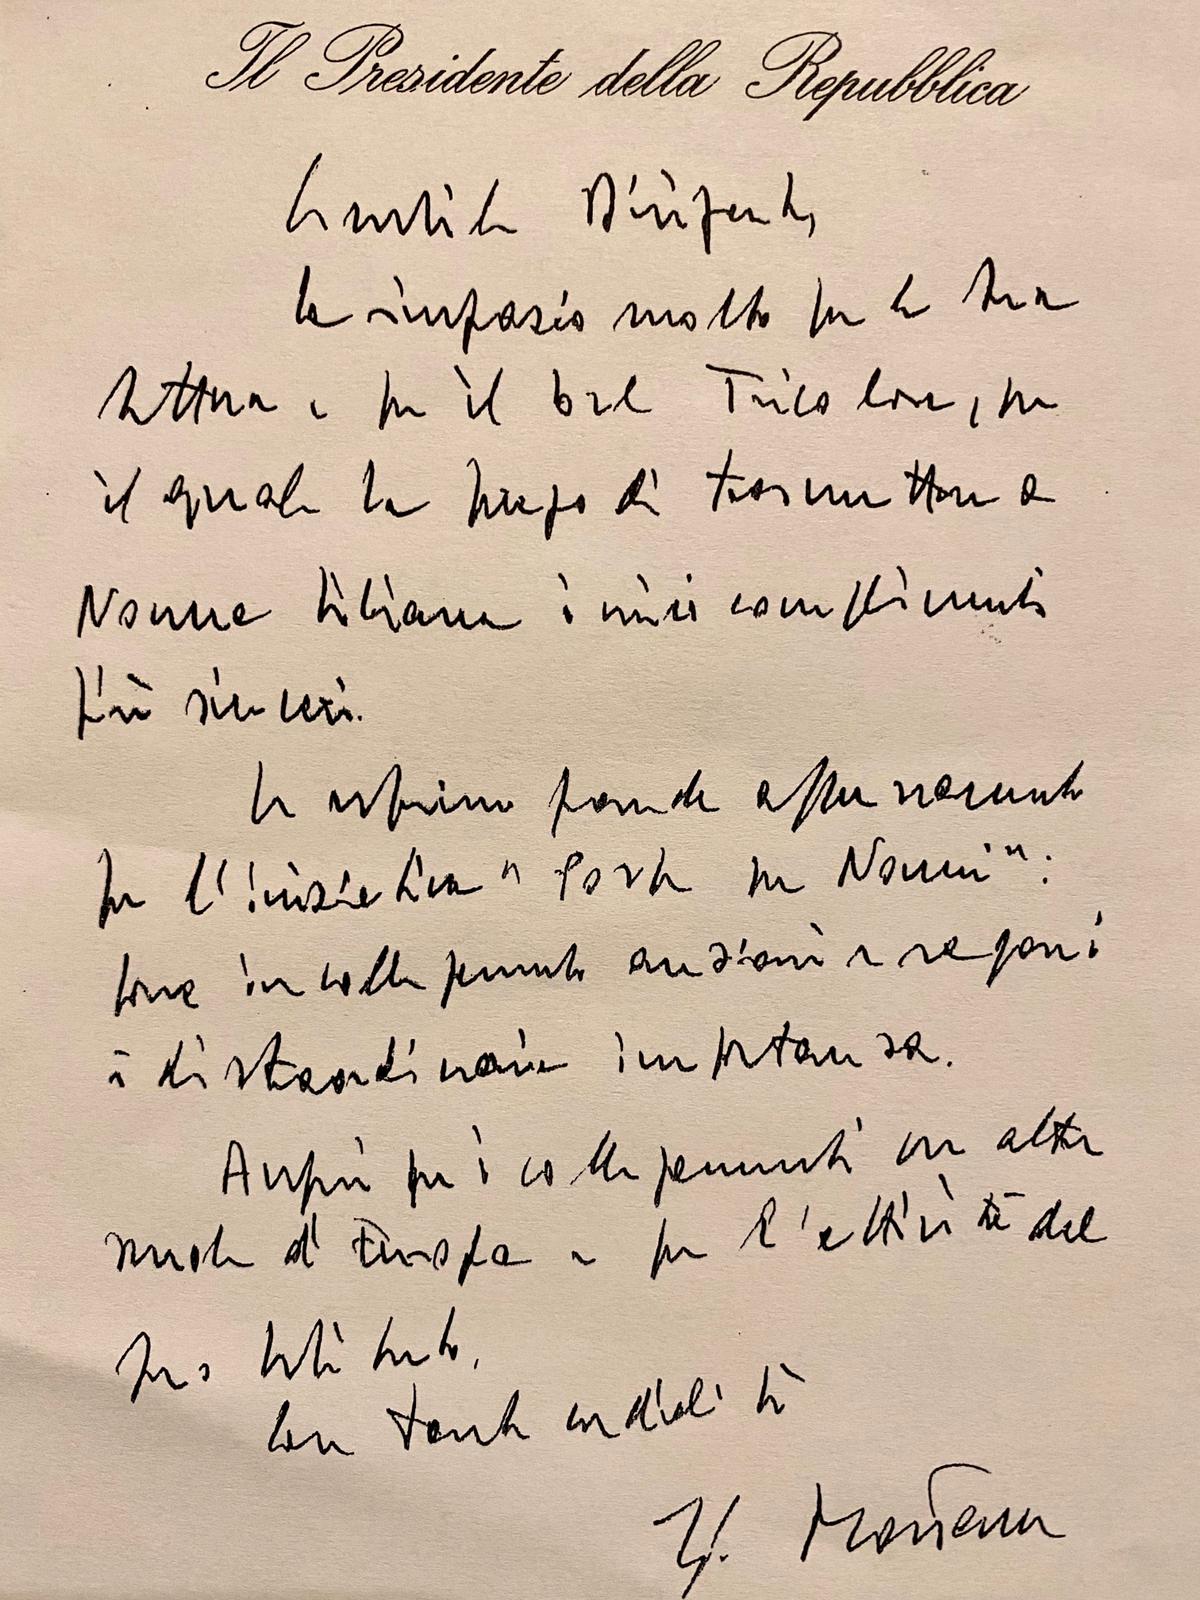 Il Presidente della Repubblica
Gentile Dirigente,
la ringrazio molto per la sua
lettera e per il bel Tricolore, per
il quale la prego di trasmettere a
Nonna Liliana i miei complimenti
più sinceri.
Le esprimo grande apprezzamento
per l'iniziativa " Posta per Nonni":
porre in collegamento anziani e ragazzi
è di straordinaria importanza.
Auguri per i collegamenti con altre
scuole d'Europa e per l'attività del
suo Istituto.
Con tanta cordialità
S. Mattarella